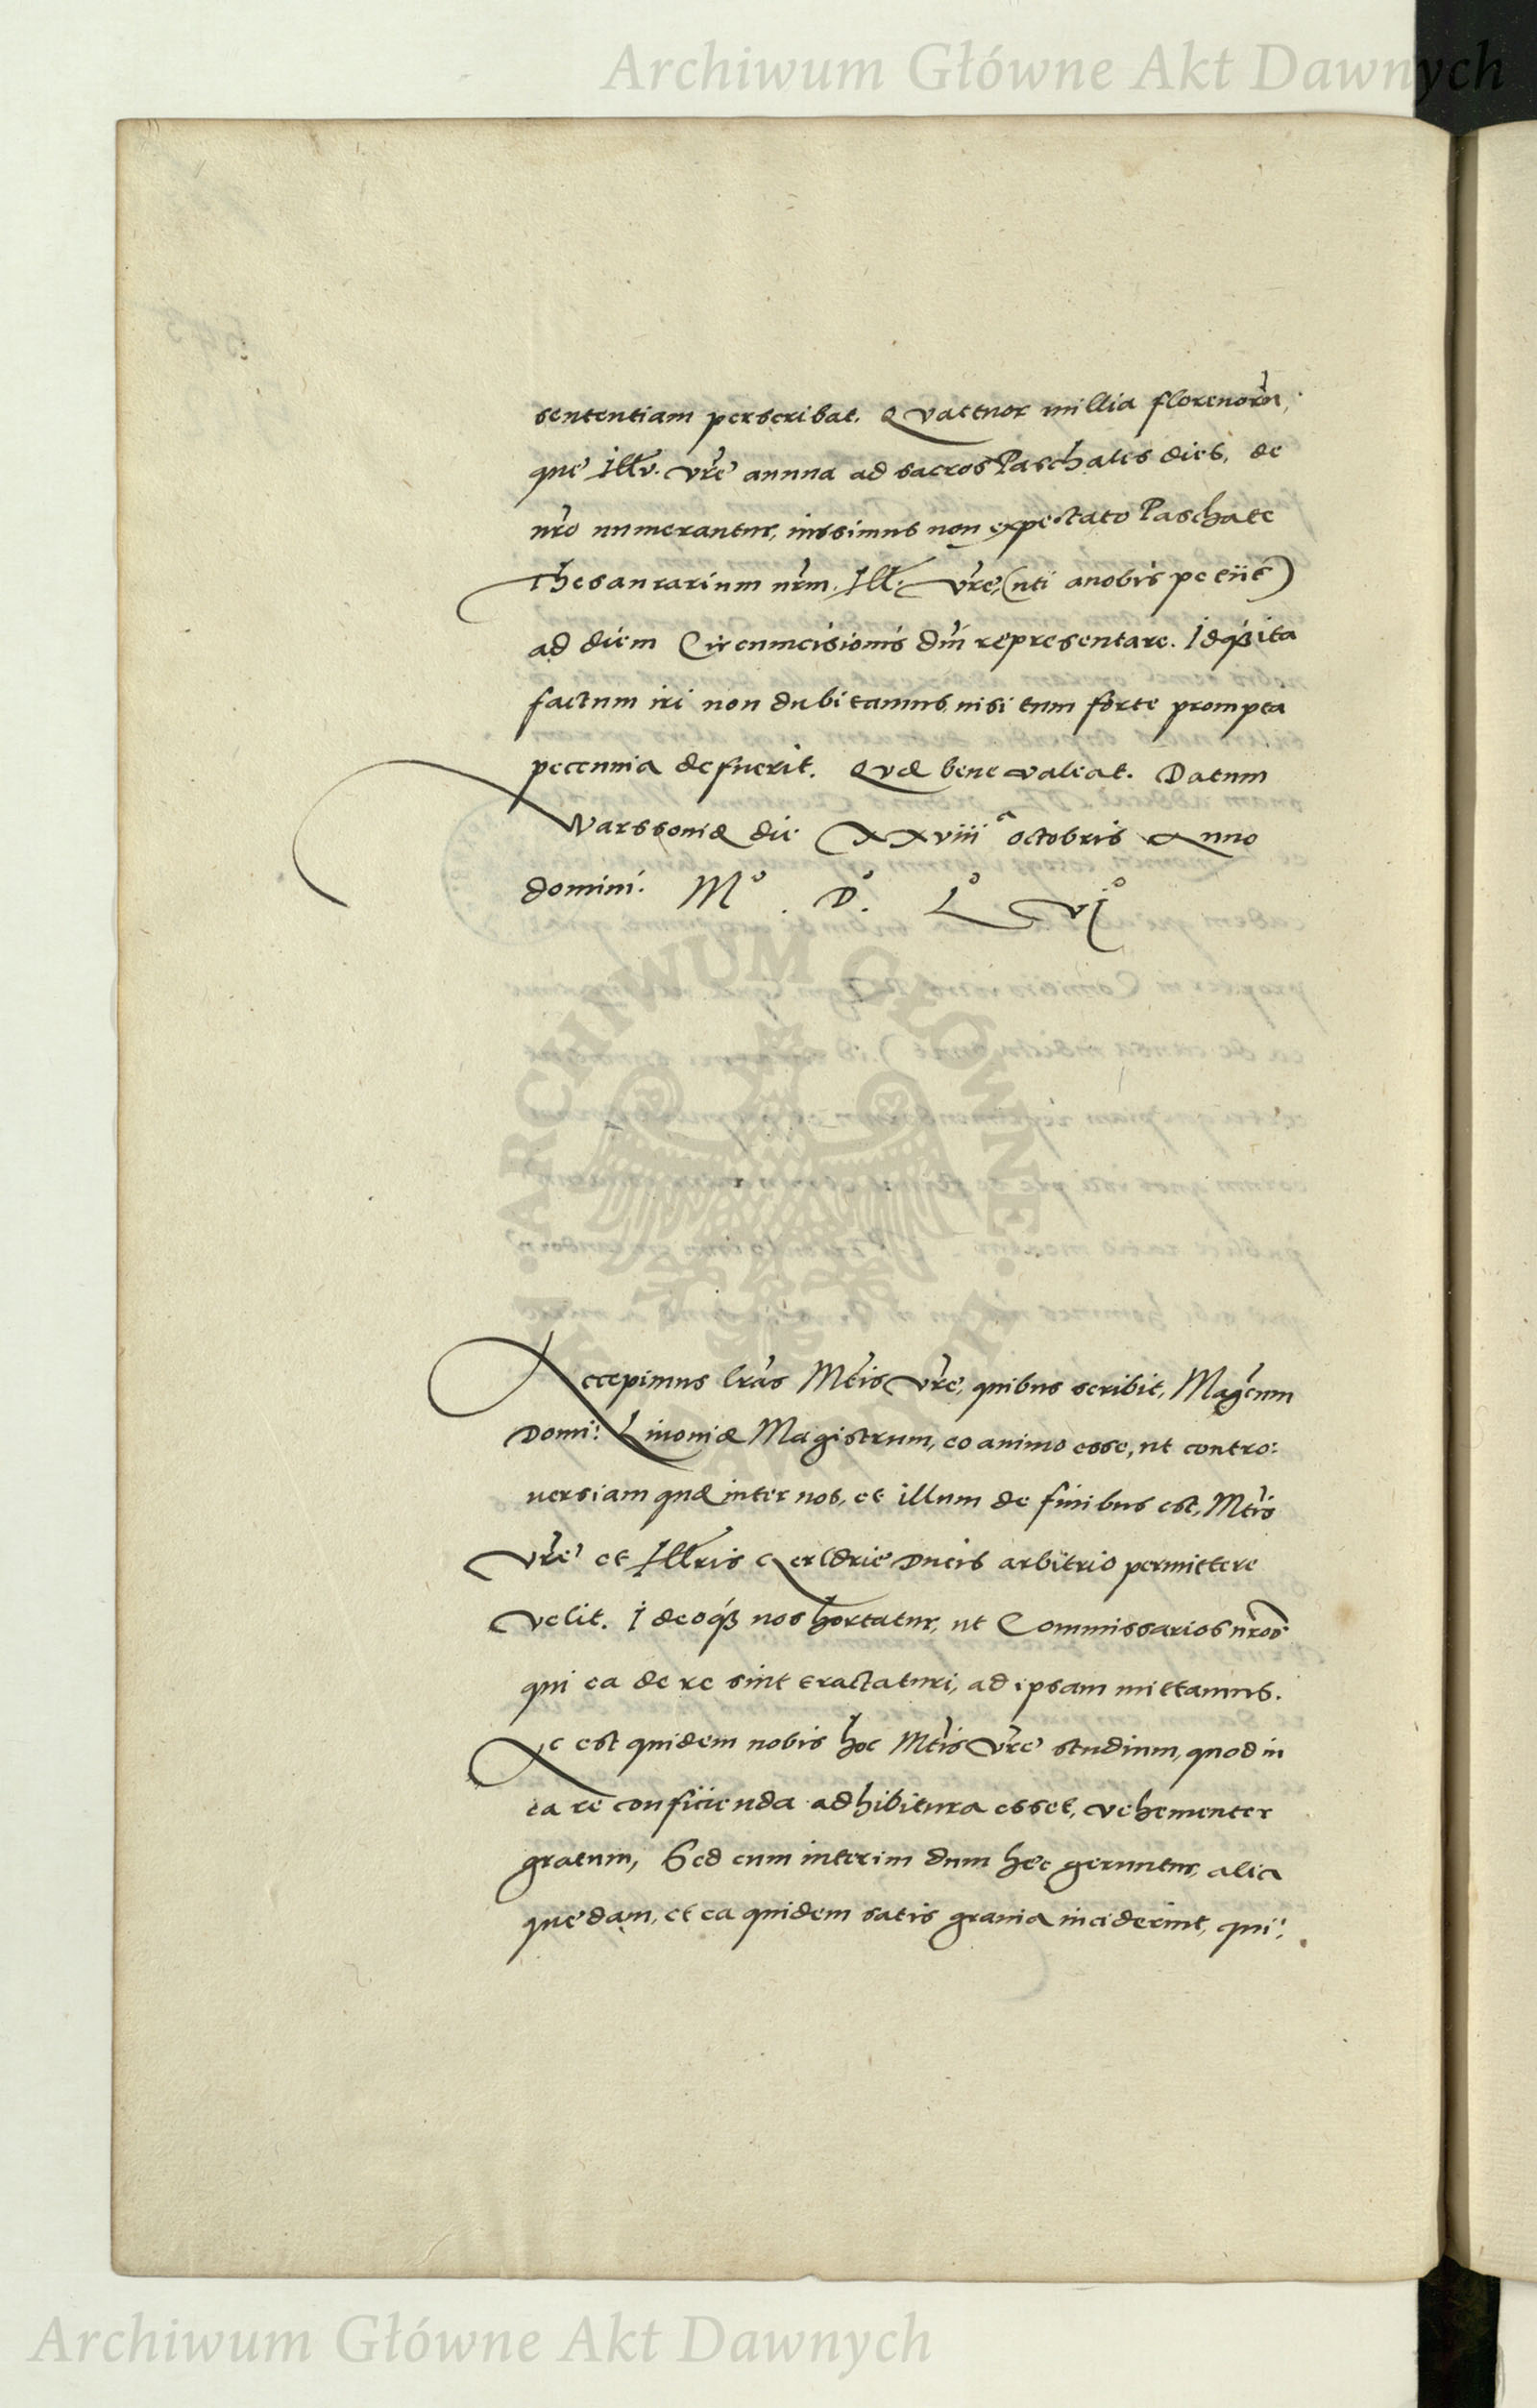 Archiwum Główne Akt Dawnych
sententiam perscribat. Quattuor millia florenorũ,
que Illu. vrẽ annua ad sacros Paschales dies, de
nrõ numerantur, iussimus non expectato Paschate
Thesaurarium nrm̃. Ill. vrẽ, (uti a nobis petiit)
ad diem Circumcisionis dnĩ representare. Idq́ß ita
factum iri non dubitamus, nisi tum forte prompta
pecunia defuerit. Quæ bene valeat. Datum
Warssoniæ die XXviii ͣ octobris Anno
domini. M° . D°. L° vi°
ARCHIWUM GŁÓWNE AKT DAWNYCH
Accepimus lrãs Mtĩs vrẽ, quibus scribit, Magcũm
Domi: Liuoniæ Magistrum, eo animo esse, ut contro:
uersiam quæ inter nos, et illum de finibus est, Mtĩs
vrẽ et Illris Gerldrie Ducis arbitrio permittere
velit. Ideoq́ß nos hortatur, ut Commissarios nrõs
qui ea de re sint tractaturi, ad ipsam mittamus.
Ac est quidem nobis hoc Mtĩs vrẽ studium, quod in
ea re conficienda adhibitura esset, vehementer
gratum, Sed cum interim dum hec geruntur, alia
quedam, et ea quidem satis grauia inciderint, qui:
Archiwum Główne Akt Dawnych